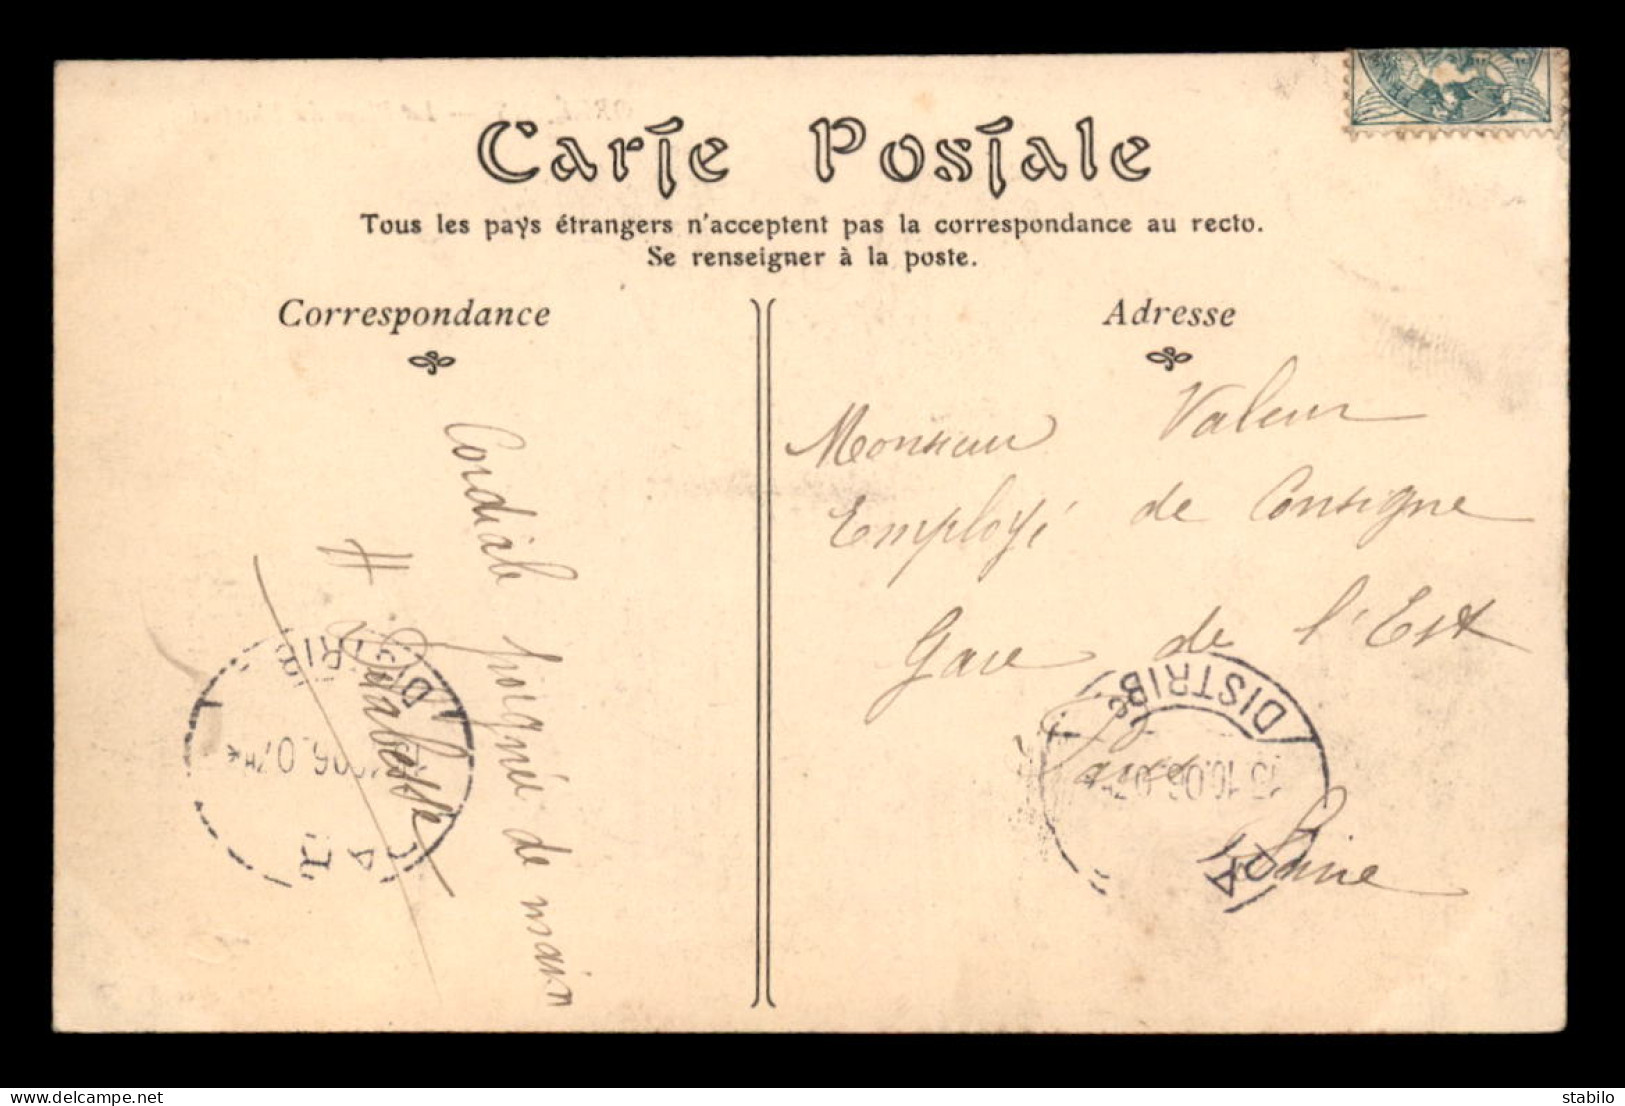 Carte Postale
Tous les pays étrangers n'acceptent pas la correspondance au recto.
Se renseigner à la poste.
Correspondance
Adresse
Cordiale poignée de main
H.
Monsieur Valeur
Employé de Consigne
Gare de l'Est
Paris
Seine
DISTRIB
DISTRIB
delcampe.net
stabilo